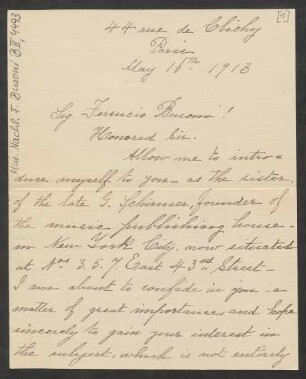 [1]
Mus. Nachl. F. Busoni B II, 4493
44 rue de Clichy
Paris
May 16th 1913
Sig Ferrucio Busoni!
Honored Sir.
Allow me to intro-
duce myself to you - as the sister
of the late G. Schirmer, founder of
the music publishing house -
in New York City, now situated
at Nos 3. 5. 7 East 43rd Street -
I am about to confide in you - a
matter of great importance, and hope
sincerely to gain your interest in
the subject, which is not entirely